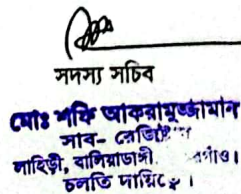 সদস্য সচিব
মোঃ শফি আকরামুজ্জামান
সাব- রেজিষ্ট্রার
লাহিড়ী, বালিয়াডাঙ্গী
চলতি দায়িত্বে।